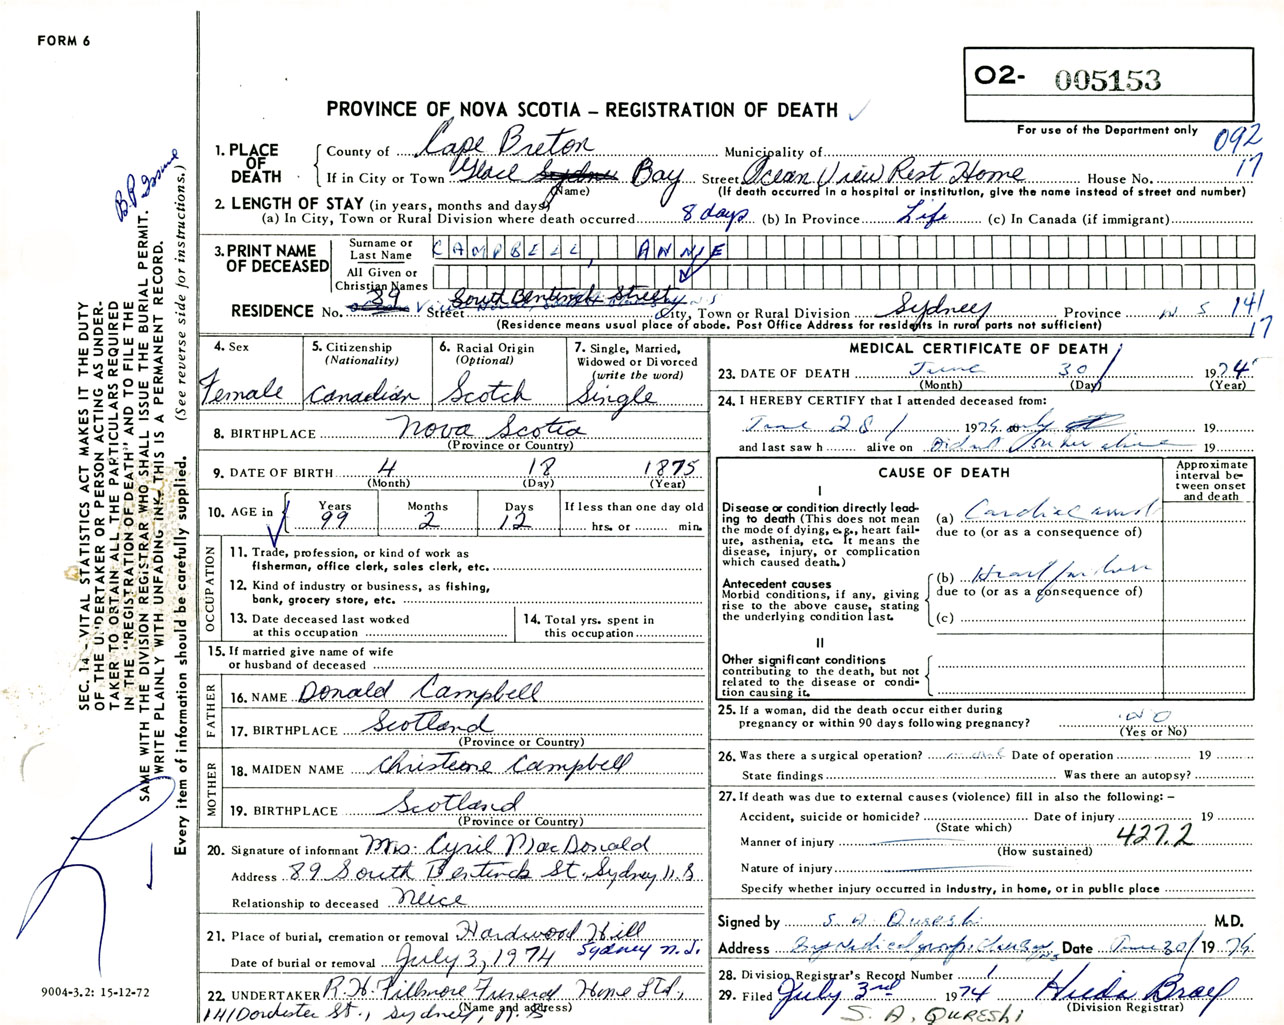 FORM 6
O2- 005153
PROVINCE OF NOVA SCOTIA – REGISTRATION OF DEATH
For use of the Department only
092
17
1. PLACE OF DEATH
County of Cape Breton Municipality of
If in City or Town Glace Sydney Bay Street Ocean View Rest Home House No.
(Name) (If death occurred in a hospital or institution, give the name instead of street and number)
2. LENGTH OF STAY (in years, months and days)
(a) In City, Town or Rural Division where death occurred 8 days (b) In Province Life (c) In Canada (if immigrant)
3. PRINT NAME OF DECEASED
Surname or Last Name CAMPBELL, ANNIE
All Given or Christian Names
RESIDENCE No. 89 Street South Bentinck Street City, Town or Rural Division Sydney Province N S 141
17
(Residence means usual place of abode. Post Office Address for residents in rural parts not sufficient)
4. Sex Female
5. Citizenship (Nationality) Canadian
6. Racial Origin (Optional) Scotch
7. Single, Married, Widowed or Divorced (write the word) Single
8. BIRTHPLACE Nova Scotia
(Province or Country)
9. DATE OF BIRTH 4 18 1875
(Month) (Day) (Year)
10. AGE in Years 99 Months 2 Days 12 If less than one day old hrs. or min.
OCCUPATION
11. Trade, profession, or kind of work as fisherman, office clerk, sales clerk, etc.
12. Kind of industry or business, as fishing, bank, grocery store, etc.
13. Date deceased last worked at this occupation
14. Total yrs. spent in this occupation
15. If married give name of wife or husband of deceased
FATHER
16. NAME Donald Campbell
17. BIRTHPLACE Scotland
(Province or Country)
MOTHER
18. MAIDEN NAME Christene Campbell
19. BIRTHPLACE Scotland
(Province or Country)
20. Signature of informant Mrs. Cyril MacDonald
Address 89 South Bentinck St. Sydney N.S
Relationship to deceased Neice
21. Place of burial, cremation or removal Hardwood Hill
Sydney N.S.
Date of burial or removal July 3, 1974
22. UNDERTAKER R.H. Fillmore Funeral Home Ltd,
(Name and address)
141 Dorchester St., Sydney, N.S
MEDICAL CERTIFICATE OF DEATH
23. DATE OF DEATH June 30 1974
(Month) (Day) (Year)
24. I HEREBY CERTIFY that I attended deceased from:
June 28 1974 only 19
and last saw h alive on Didn't see her alive 19
CAUSE OF DEATH
Approximate interval between onset and death
I
Disease or condition directly leading to death (This does not mean the mode of dying, e.g., heart failure, asthenia, etc. It means the disease, injury, or complication which caused death.)
(a) Cardiac arrest
due to (or as a consequence of)
Antecedent causes
Morbid conditions, if any, giving rise to the above cause, stating the underlying condition last.
(b) Heart failure
due to (or as a consequence of)
(c)
II
Other significant conditions
contributing to the death, but not related to the disease or condition causing it.
25. If a woman, did the death occur either during pregnancy or within 90 days following pregnancy? NO
(Yes or No)
26. Was there a surgical operation? Date of operation 19
State findings Was there an autopsy?
27. If death was due to external causes (violence) fill in also the following: –
Accident, suicide or homicide? Date of injury 19
(State which)
427.2
Manner of injury
(How sustained)
Nature of injury
Specify whether injury occurred in industry, in home, or in public place
Signed by S. A. QURESHI M.D.
Address Date June 30/ 1974
28. Division Registrar's Record Number 1
29. Filed July 3rd 1974
(Division Registrar)
S. A. QURESHI
B.P. Issue
SEC. 14 – VITAL STATISTICS ACT MAKES IT THE DUTY
OF THE UNDERTAKER OR PERSON ACTING AS UNDER-
TAKER TO OBTAIN ALL THE PARTICULARS REQUIRED
IN THE "REGISTRATION OF DEATH" AND TO FILE THE
SAME WITH THE DIVISION REGISTRAR WHO SHALL ISSUE THE BURIAL PERMIT.
WRITE PLAINLY WITH UNFADING INK. THIS IS A PERMANENT RECORD.
Every item of information should be carefully supplied. (See reverse side for instructions.)
9004-3.2: 15-12-72